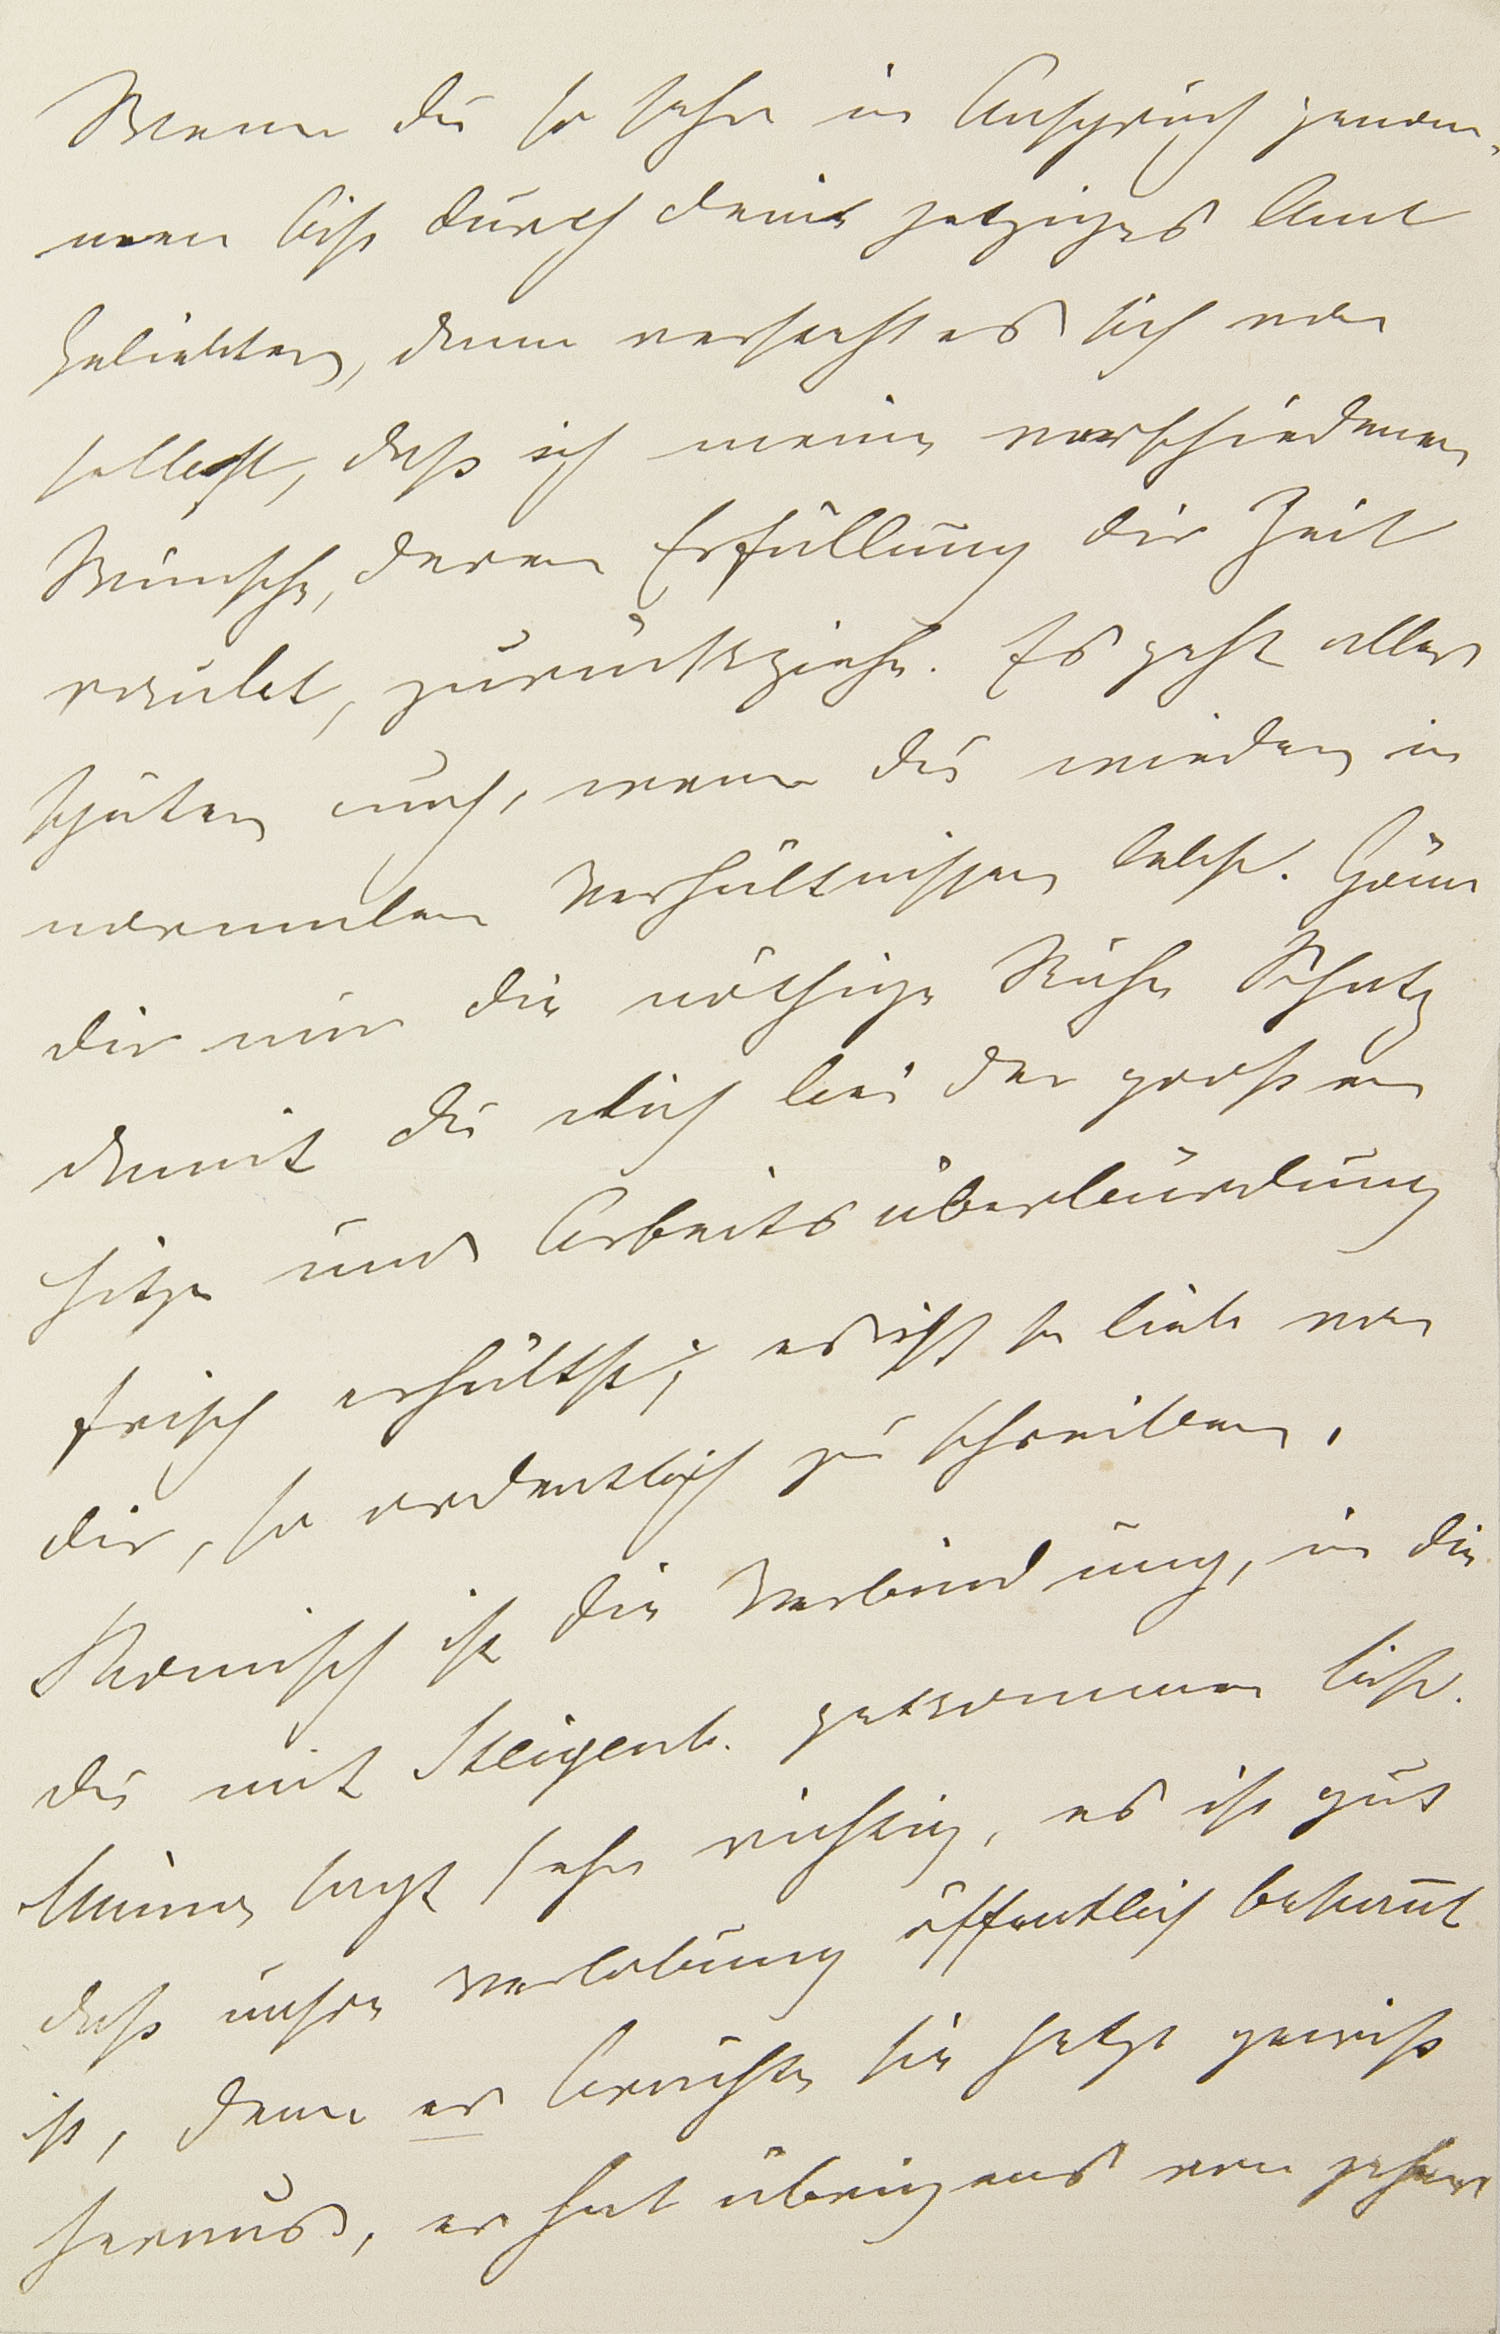 Wenn du so sehr in Anspruch genom-
men bist durch dein jetziges Amt
Geliebter, dann versteht es sich von
selbst, daß ich meine verschiedenen
Wünsche, deren Erfüllung dir Zeit
raubt, zurückziehe. Es geht alles
später auch, wenn du wieder in
normalen Verhältnissen lebst. Gönne
dir nur die nöthige Ruhe Schatz
damit du dich bei der großen
Hitze und Arbeitsüberbürdung
frisch erhältst; es ist so lieb von
dir, so ordentlich zu schreiben.
Komisch ist die Verbindung, in die
du mit Steigenb. gekommen bist.
Mama sagt sehr richtig, es ist gut
daß unsre Verlobung öffentlich bekannt
ist, denn er brächte sie jetzt gewiß
heraus, er hat übrigens von jeher